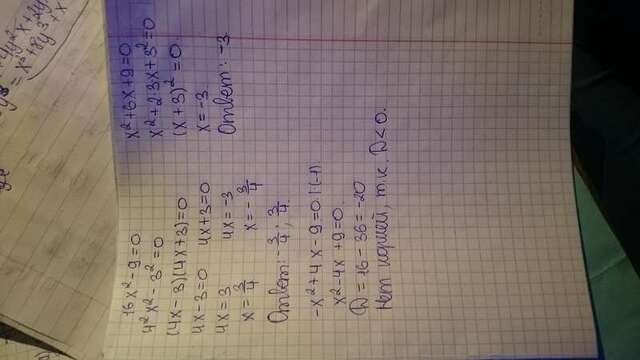 +4y²x+2y
= x³+8y³+x
16x² - 9 = 0
4²x² - 3² = 0
(4x - 3)(4x + 3) = 0
4x - 3 = 0   4x + 3 = 0
4x = 3   4x = -3
x = 3/4   x = - 3/4
Ответ: - 3/4 ; 3/4
-x² + 4x - 9 = 0 | (-1)
x² - 4x + 9 = 0
D = 16 - 36 = -20
Нет корней, т.к. D < 0.
x² + 6x + 9 = 0
x² + 2·3x + 3² = 0
(x + 3)² = 0
x = -3
Ответ: -3